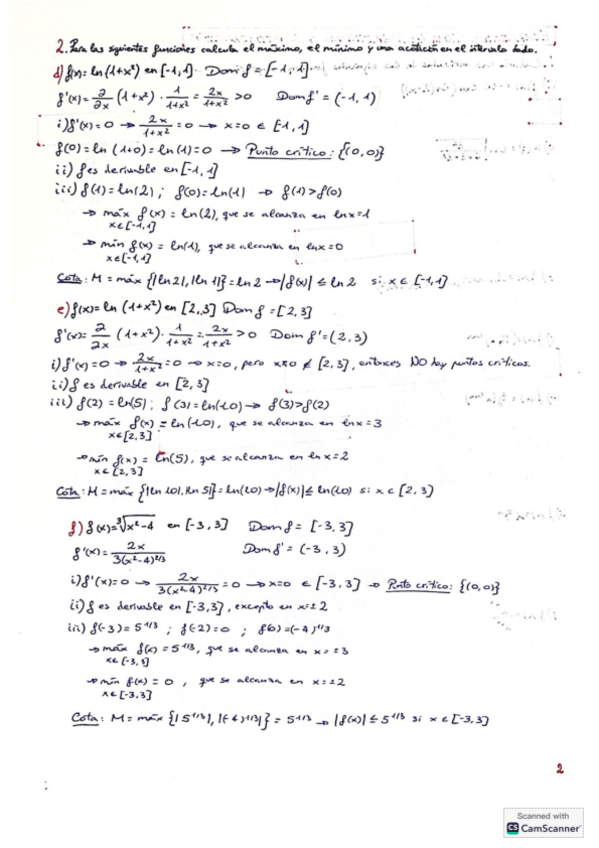 2. Para las siguientes funciones calcula el máximo, el mínimo y una acotación en el intervalo dado.
d) f(x) = ln(1+x²) en [-1,1]. Dom f = [-1,1].
f'(x) = ∂/∂x (1+x²) · 1/(1+x²) = 2x/(1+x²) >0 Dom f' = (-1,1)
i) f'(x) = 0 → 2x/(1+x²) = 0 → x=0 ∈ [-1,1]
f(0) = ln (1+0) = ln(1) = 0 → Punto crítico: {(0,0)}
ii) f es derivable en [-1,1]
iii) f(1) = ln(2) ; f(0) = ln(1) → f(1) > f(0)
→ máx f(x) = ln(2), que se alcanza en ln x = 1
x∈[-1,1]
→ mín f(x) = ln(1), que se alcanza en ln x = 0
x∈[-1,1]
Cota: M = máx {|ln 2|, |ln 1|} = ln 2 → |f(x)| ≤ ln 2 si x ∈ [-1,1]
e) f(x) = ln (1+x²) en [2,3] Dom f = [2,3]
f'(x) = ∂/∂x (1+x²) · 1/(1+x²) = 2x/(1+x²) >0 Dom f' = (2,3)
i) f'(x) = 0 → 2x/(1+x²) = 0 → x=0, pero x=0 ∉ [2,3], entonces NO hay puntos críticos.
ii) f es derivable en [2,3]
iii) f(2) = ln(5) ; f(3) = ln(10) → f(3) > f(2)
→ máx f(x) = ln(10), que se alcanza en ln x = 3
x∈[2,3]
→ mín f(x) = ln(5), que se alcanza en ln x = 2
x∈[2,3]
Cota: M = máx {|ln 10|, |ln 5|} = ln(10) → |f(x)| ≤ ln(10) si x ∈ [2,3]
f) f(x) = ∛(x²-4) en [-3,3] Dom f = [-3,3]
f'(x) = 2x/(3(x²-4)^2/3) Dom f' = (-3,3)
i) f'(x) = 0 → 2x/(3(x²-4)^2/3) = 0 → x=0 ∈ [-3,3] → Punto crítico: {(0,0)}
ii) f es derivable en [-3,3], excepto en x=±2
iii) f(-3) = 5^1/3 ; f(-2) = 0 ; f(0) = (-4)^1/3
→ máx f(x) = 5^1/3, que se alcanza en x = ±3
x∈[-3,3]
→ mín f(x) = 0, que se alcanza en x = ±2
x∈[-3,3]
Cota: M = máx {|5^1/3|, |(-4)^1/3|} = 5^1/3 → |f(x)| ≤ 5^1/3 si x ∈ [-3,3]
2
Scanned with
CS CamScanner